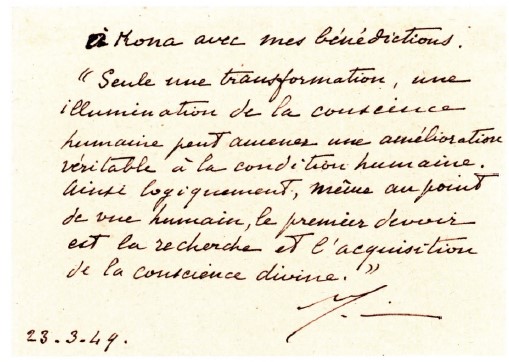 à Mona avec mes bénédictions.
"Seule une transformation, une
illumination de la conscience
humaine peut amener une amélioration
véritable à la condition humaine.
Ainsi logiquement, même au point
de vue humain, le premier devoir
est la recherche et l'acquisition
de la conscience divine."
23.3.49.